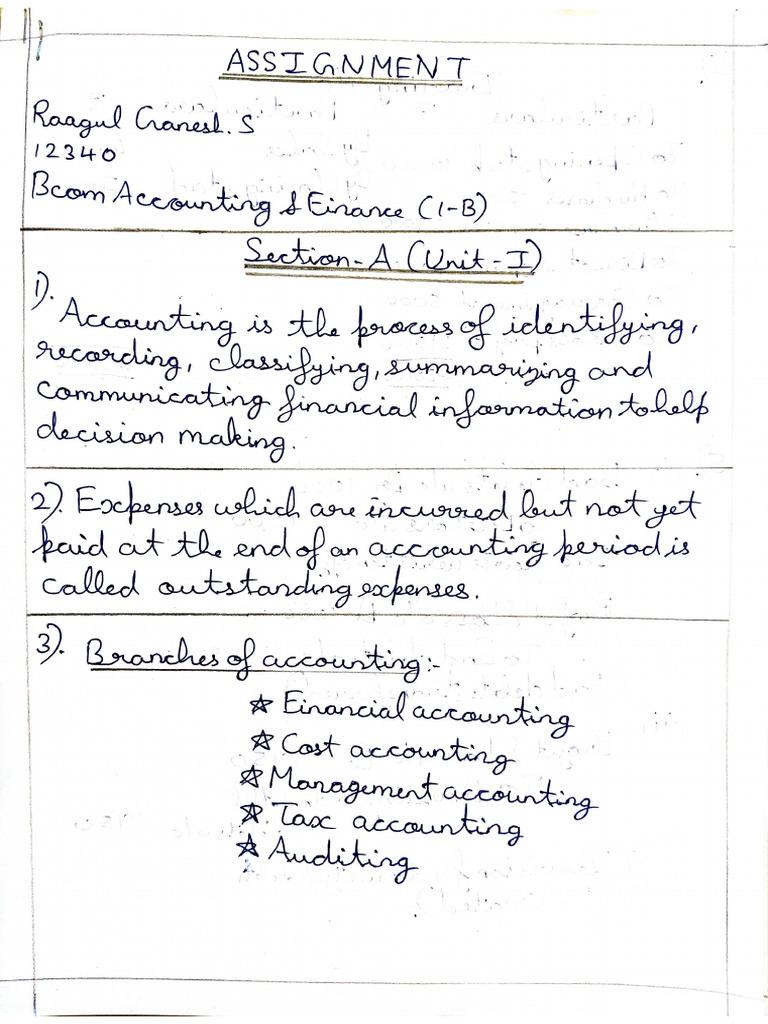 ASSIGNMENT
Raagul Ganesh. S
12340
Bcom Accounting & Finance (1-B)
Section-A (Unit-I)
1).
Accounting is the process of identifying,
recording, classifying, summarizing and
communicating financial information to help
decision making.
2). Expenses which are incurred but not yet
paid at the end of an accounting period is
called outstanding expenses.
3). Branches of accounting:-
☆ Financial accounting
☆ Cost accounting
☆ Management accounting
☆ Tax accounting
☆ Auditing